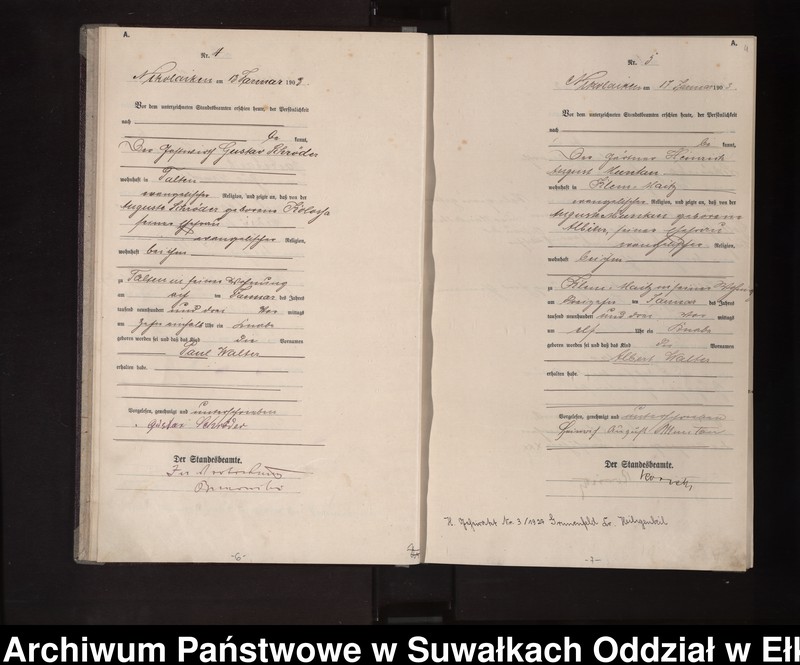 A.
Nr. 4
Nikolaiken am 13 Januar 1903
Vor dem unterzeichneten Standesbeamten erschien heute, der Persönlichkeit
nach
be kannt,
Der Gustav Schröder
wohnhaft in Talten
evangelischer Religion, und zeigte an, daß von der
Auguste Schröder geborene
seiner Ehefrau
evangelischer Religion,
wohnhaft bei ihm
zu Talten in seiner Wohnung
am elf ten Januar des Jahres
tausend neunhundert und drei Vor mittags
um zehn einhalb Uhr ein Knabe
geboren worden sei und daß das Kind die Vornamen
Paul Walter
erhalten habe.
Vorgelesen, genehmigt und unterschrieben
Gustav Schröder
Der Standesbeamte.
In Vertretung
-6-
A.
Nr. 5
Nikolaiken am 17 Januar 1903
Vor dem unterzeichneten Standesbeamten erschien heute, der Persönlichkeit
nach
be kannt,
Der Gärtner Heinrich
August
wohnhaft in Klein-
evangelischer Religion, und zeigte an, daß von der
Auguste geborene
seiner Ehefrau
evangelischer Religion,
wohnhaft bei ihm
zu Klein- in seiner Wohnung
am dreizehn ten Januar des Jahres
tausend neunhundert und drei Vor mittags
um elf Uhr ein Knabe
geboren worden sei und daß das Kind die Vornamen
Albert Walter
erhalten habe.
Vorgelesen, genehmigt und unterschrieben
Heinrich August
Der Standesbeamte.
Nr. 3/1929 Grunenfeld Kr. Heiligenbeil
-7-
Archiwum Państwowe w Suwałkach Oddział w Ełk